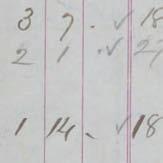 3 7 . ✓ 18
2 1 . ✓ 27
1 14 . ✓ 18